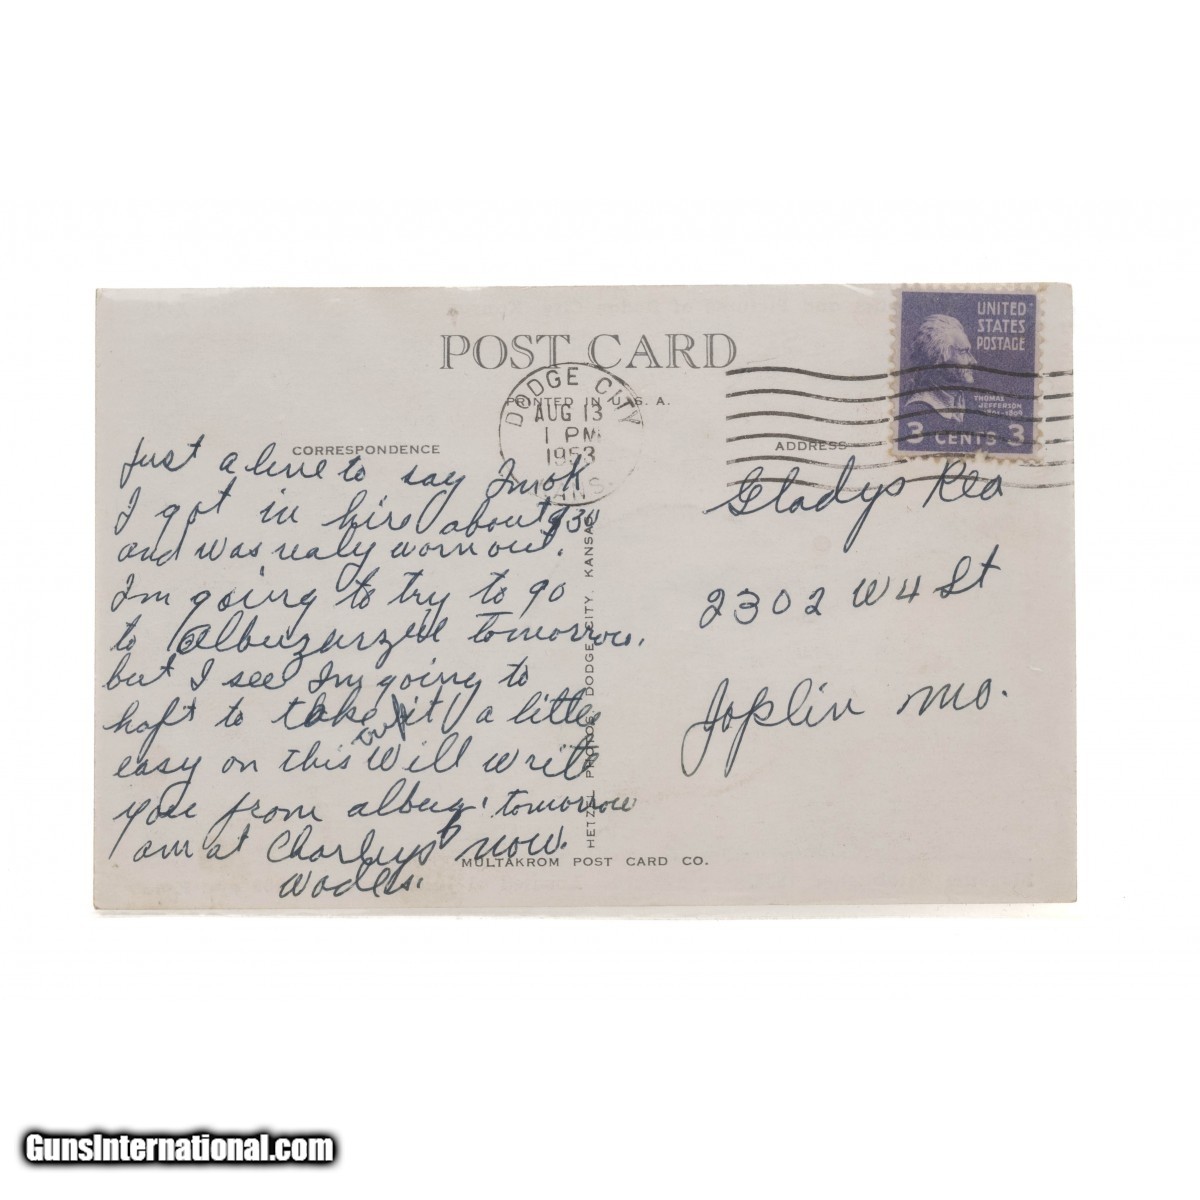 POST CARD
PRINTED IN U.S.A.
DODGE CITY
AUG 13
1 PM
1953
KANS.
UNITED
STATES
POSTAGE
THOMAS
JEFFERSON
1801-1809
3 CENTS 3
CORRESPONDENCE
Just a line to say Im ok
I got in hire about 9 30
and was realy worn out.
I'm going to try to go
to tomorrow.
but I see Im going to
haft to take it a little
easy on this Will write
you from albuq. tomorrow
am at Charleys now.
ADDRESS
Gladys Rea
2302 W 4 St
Joplin Mo.
HETZEL PHOTOS DODGE CITY, KANSAS
MULTAKROM POST CARD CO.
GunsInternational.com